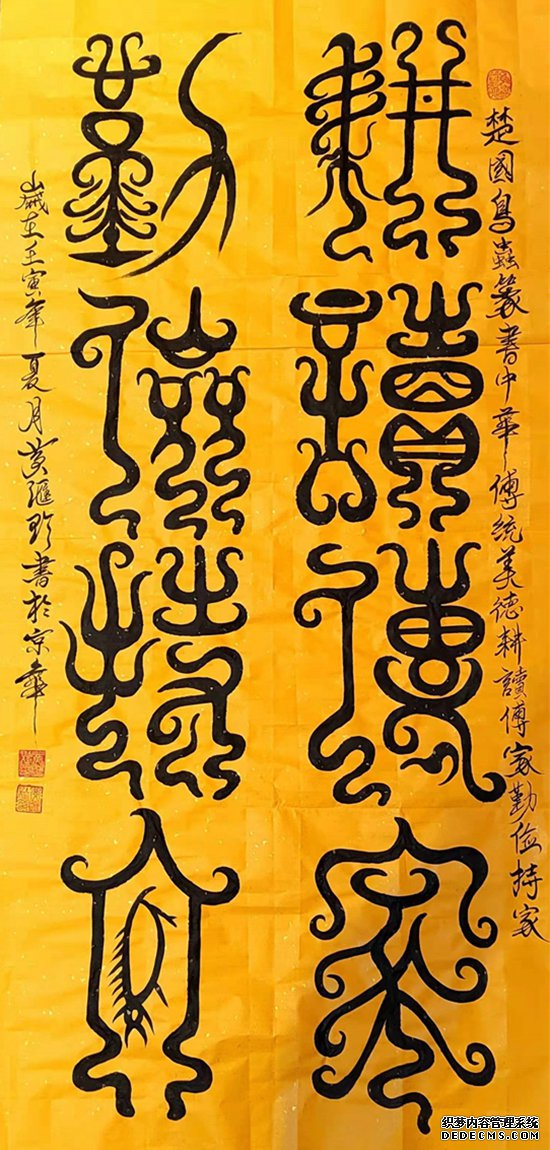 楚國鳥蟲篆書中華傳統美德耕讀傳家勤儉持家
耕讀傳家
勤儉持家
歲在壬寅年夏月黄書於京華
织梦内容管理系统
DEDECMS.COM